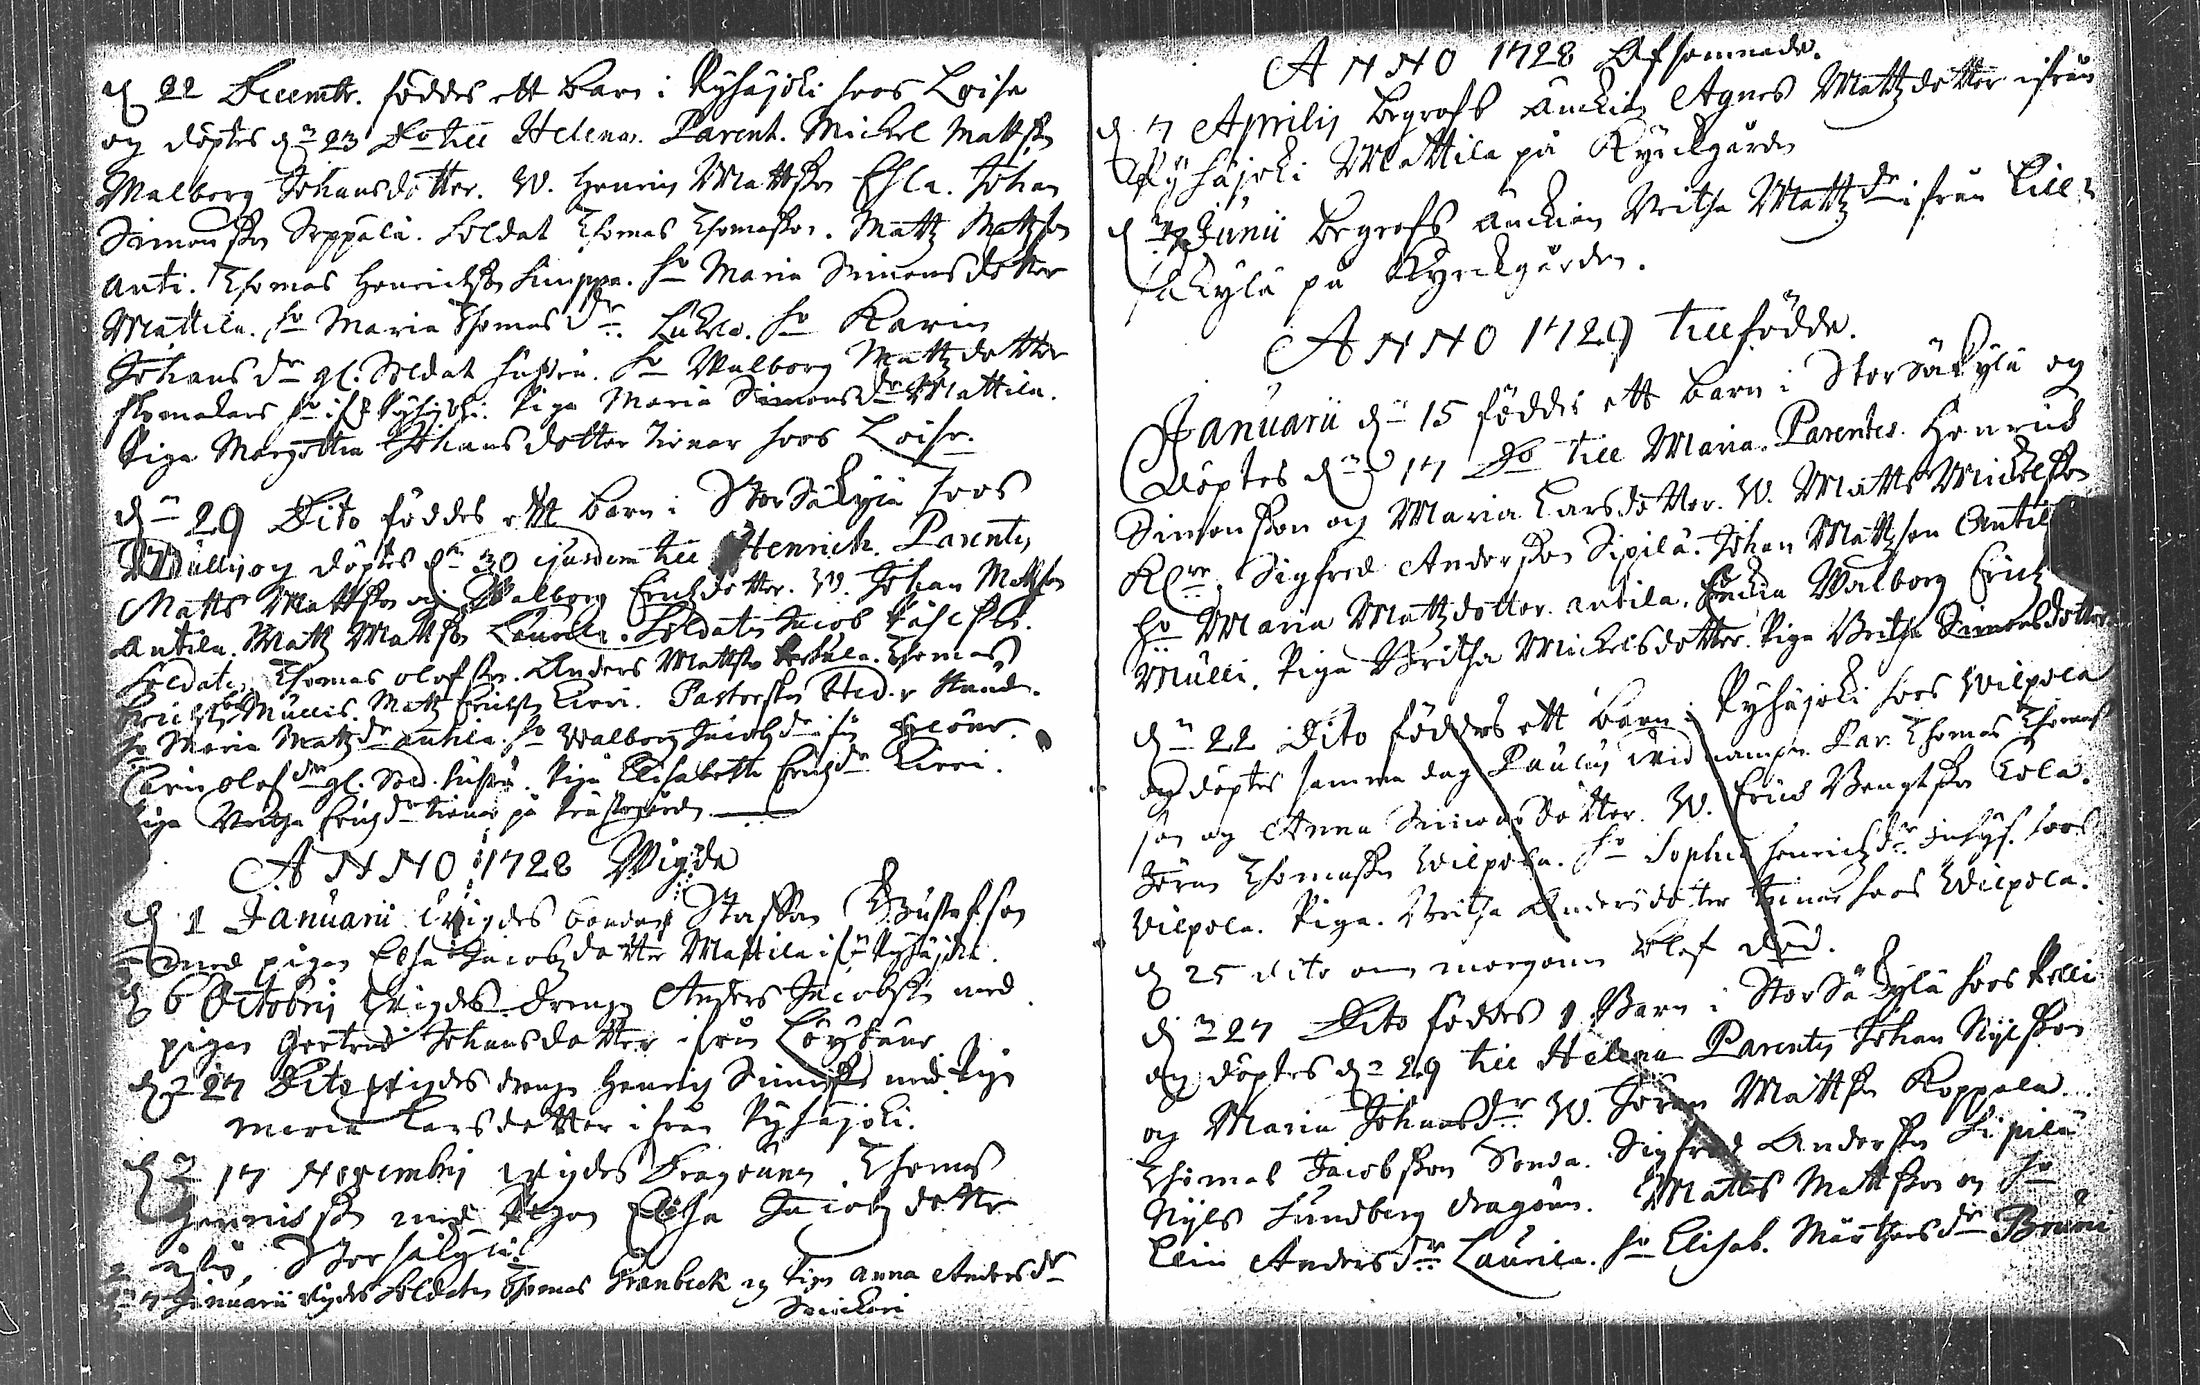 d 22 Decembr. föddes ett barn i Pyhäjoki hoos Loise
og döptes dn 23 Do till Helena. Parent. Mickel Mattsson
Walborg Johansdotter. W. Henrig Mattsson Eskla. Johan
Simonsson Seppälä. Soldat Thomas Thomasson. Mattz Mattzson
Anti. Thomas Henrichsson Simppa. ho Maria Simonsdotter
Mattila. ho Maria Thomasdr. ho Karin
Johansdr gl. Soldat hustru. ho Walborg Mattzdotter
skomakars ho Pyhäjoki. Piga Maria Simonsdr Mattila.
Piga Margetta Johansdotter tienar hoos Loise.
dn 29 Dito föddes ett barn i StorSäkylä hoos
Mulli og döptes dn 30 ejusdem till Henrich. Parentes
Matts Mattsson og Walborg Erichsdotter. W. Johan Mattson
Antila. Matz Mattsson Laurila. Soldaten Jacob
Soldaten Thomas Olofsson. Anders Mattsson Thomas
Erichsson Mullis. Matz Erichsson Kieri. Pastorskan Hed.
ho Maria Matzdr Antila. ho Walborg Jacobsdr
Karin Olofsdr gl. Sold. hustru. Piga Elisabetha Erichsdr Kieri.
Piga Britha Erichsdr tienar på Prästegården
ANNO 1728 Wigde
d 1 Januarii Wigdes bonden Staffan Gustafson
med pigan Ebba Jacobzdotter Mattila ifrån Pyhäjoki.
d 6 Octobris Wigdes drengen Anders Jacobsson med
pigan Gertrud Johansdotter ifrån Löytäne
dn 27 Dito Wigdes drengen Henrig Simonsson med Pigan
Maria Larsdotter ifrån Pyhäjoki.
dn 17 Novembris Wigdes Dragounen Thomas
Henrisson med Pigan Elisa Jacobzdotter
StorSäkylä
7 Januarii Wigdes Soldaten Thomas Granbeck og Pigan Anna Andersdr
ANNO 1728 Afsomnade.
d 7 Aprilis begrofs Änckian Agnes Mattzdotter ifrån
Pyhäjoki Mattila på Kyrckgården
d Junii begrofs Änckian Britha Mattzdr ifrån Lill
säkylä på Kyrckgården.
ANNO 1729 tillfödde.
Januarii dn 15 föddes ett barn i StorSäkylä og
döptes dn 17 Do till Maria. Parentes. Henrich
Simonsson og Maria Larsdotter. W. Matts Mickelsson
Sigfred Andersson Sipilä. Johan Mattzson Antil
ho Maria Mattzdotter. Antila. Änckia Walborg Erichz
Mulli. Piga Britha Mickelsdotter. Piga Britha Simonsdotter
dn 22 Dito föddes ett barn i Pyhäjoki hoos Wilpola
og döptes samma dag Paulus wid nampn. Par. Thomas Thomas
son og Anna Simonsdotter. W. Erich Bengtsson Kola.
Jören Thomasson Wilpola. ho Sophia Henrichzdr inhys. hoos
Wilpola. Piga. Britha Andersdotter tienar hoos Wilpola.
d 25 dito om morgonen blef död.
dn 27 Dito föddes 1 Barn i StorSäkylä hoos Pelli
og döptes dn 29 till Helena Parentes Johan Nylsson
og Maria Johansdr. W. Jören Mattsson Koppala
Thomas Jacobsson Sonda. Sigfred Andersson Sipilä
Nyls Lundberg dragoun. Matts Mattsson og ho
Elin Andersdr Laurila. ho Elisab. Mårthensdr Bruni